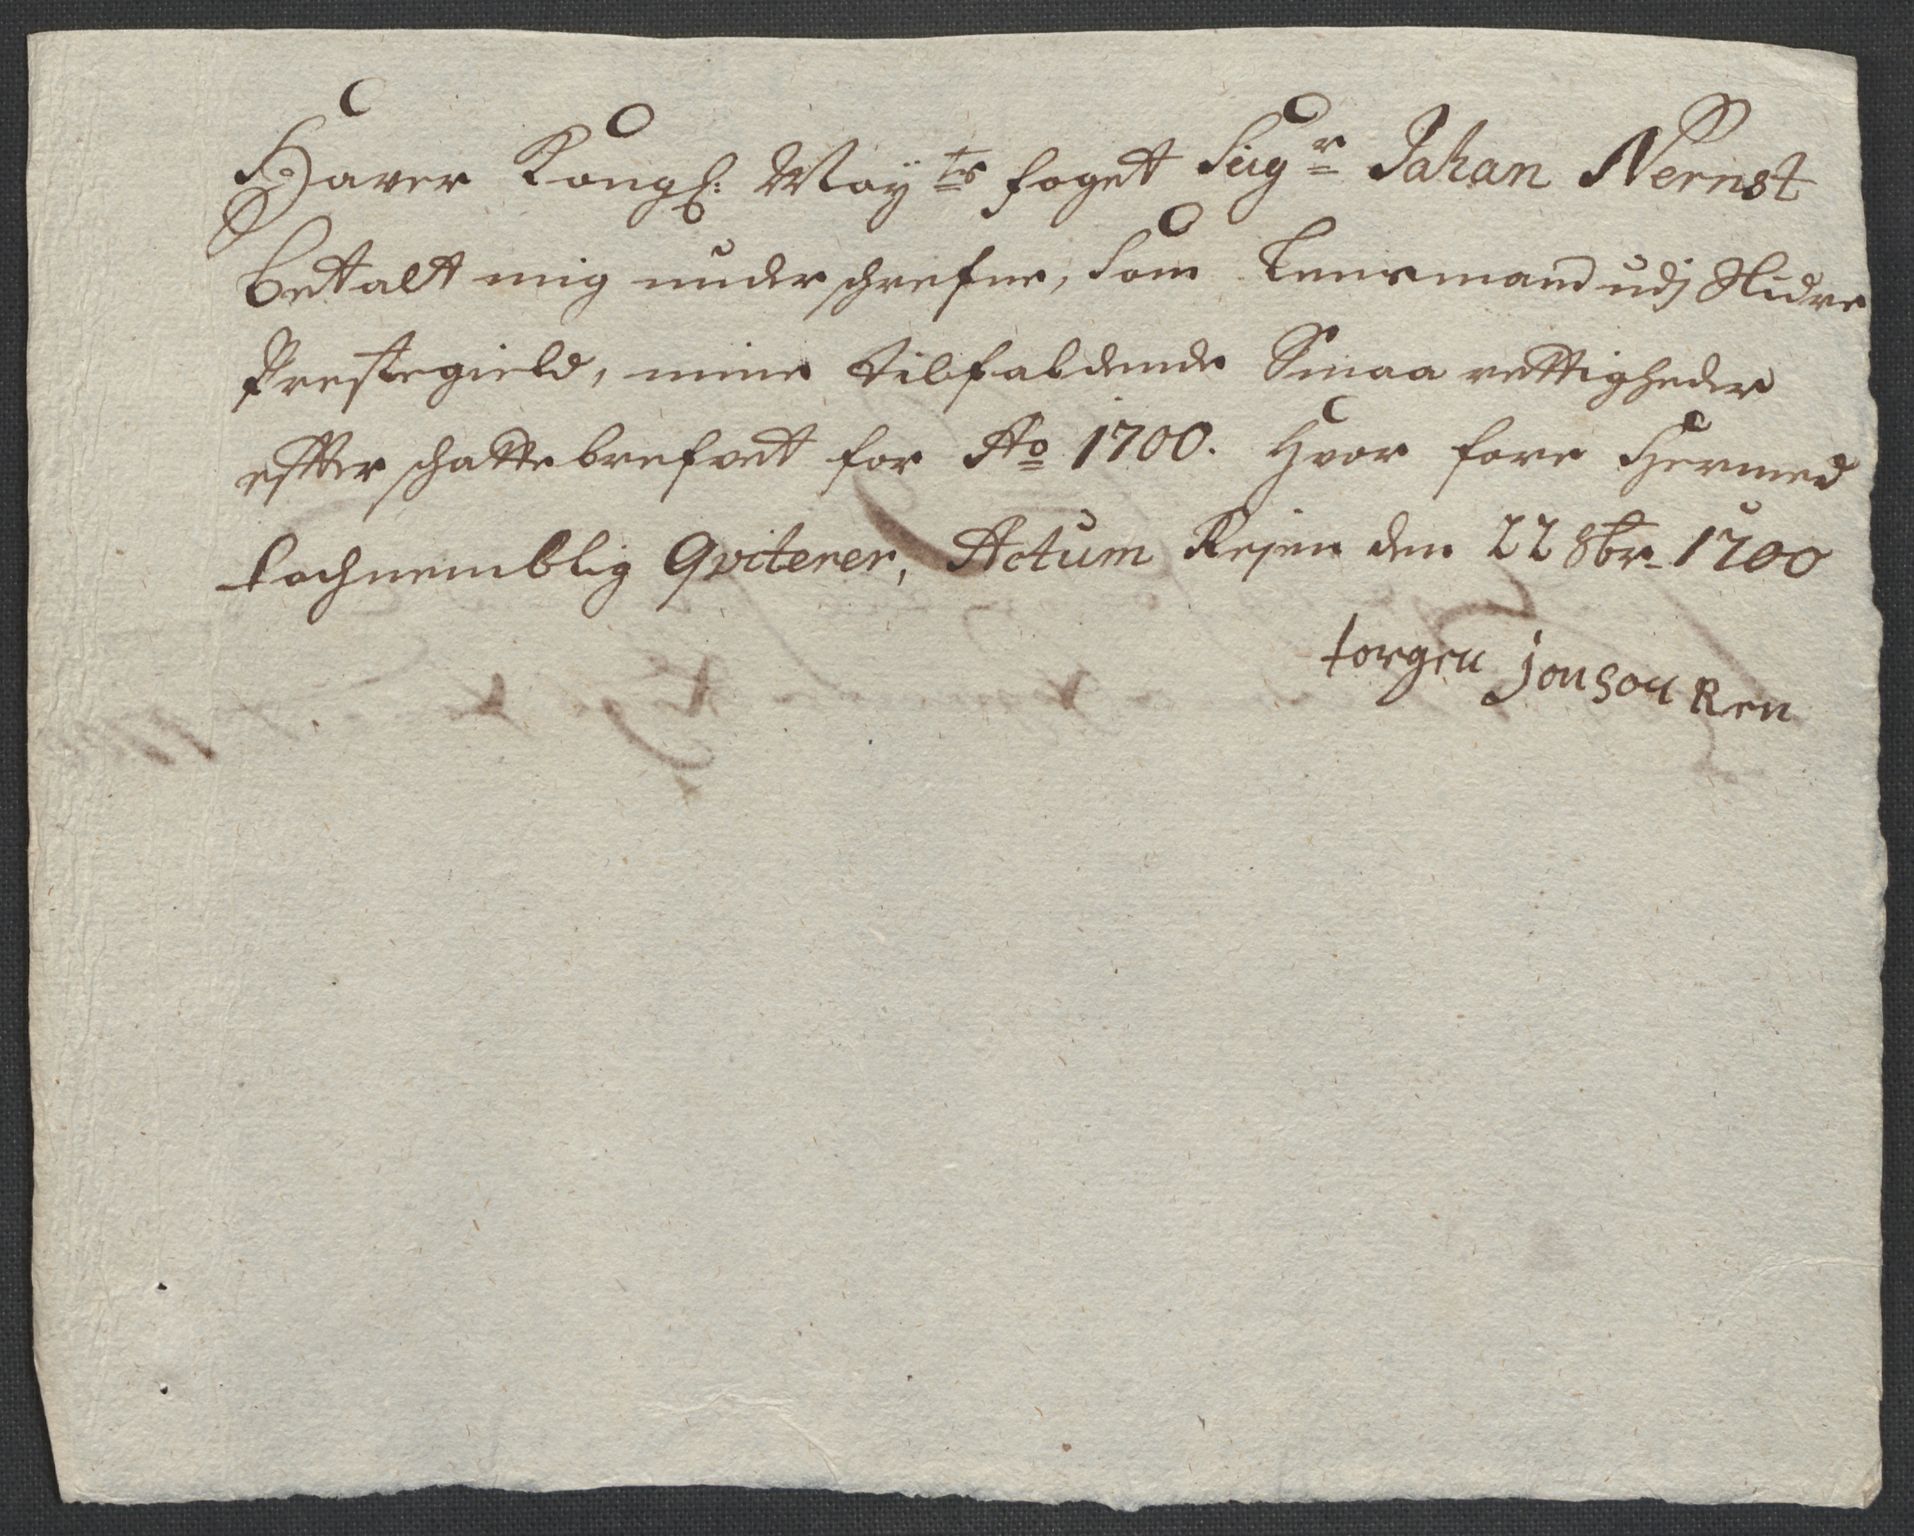 Haver Kongl: Mayts foget Seigr Johan Nernst
betalt mig underschrefne, Som Lensmand udj Slidre
Prestegield, mine tilfaldende Smaa rettigheder
efter schattebrefvet for Ao 1700. Hvor fore Hermed
tachnemblig Qviterer, Actum Rejen den 22 8br. 1700
torgen jonson Ren